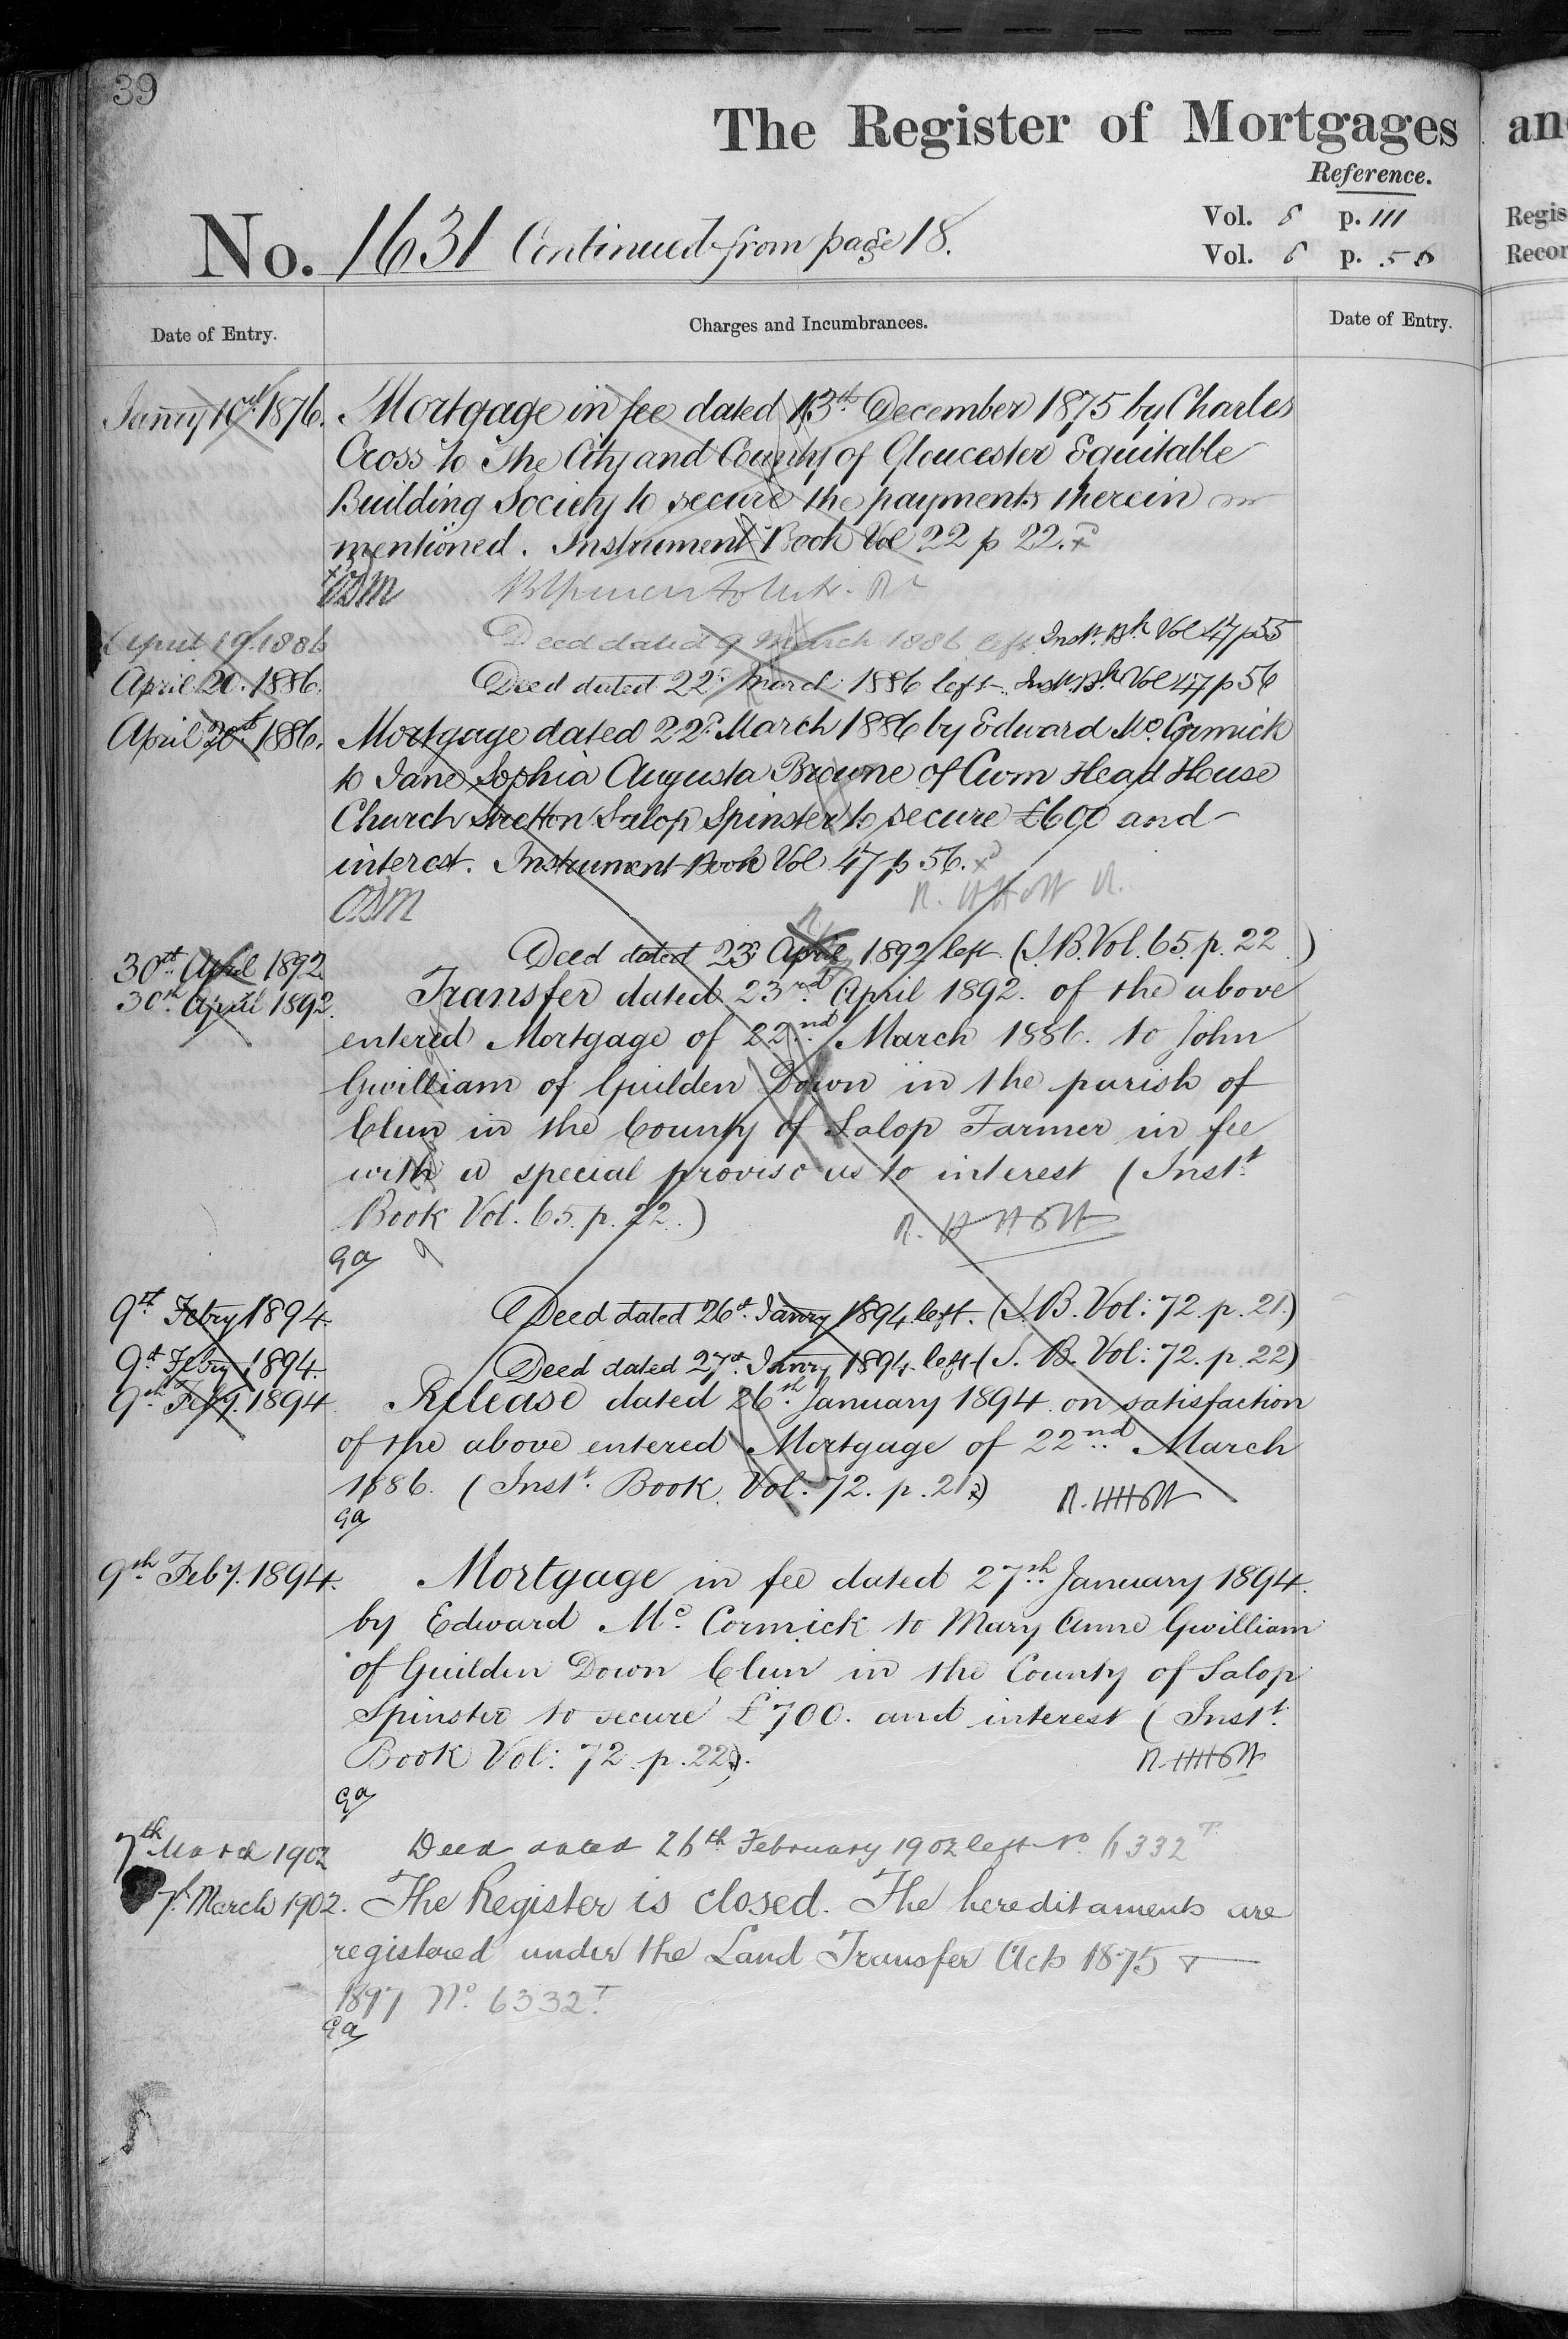 39
The Register of Mortgages an
Reference.
No. 1631 Continued from page 18.
Vol. 5 p. 111 Regis
Vol. 6 p. 56 Recor
Date of Entry. Charges and Incumbrances. Date of Entry.
Janry 10th 1876. Mortgage in fee dated 13th December 1875 by Charles
Cross to The City and County of Gloucester Equitable
Building Society to secure the payments therein
mentioned. Instrument Book Vol 22 p 22.
April 19. 1886 Deed dated 9 March 1886 left. Inst. Bk Vol 47 p 55
April 20. 1886. Deed dated 22d March 1886 left. Inst. Bk Vol 47 p 56
April 20th 1886. Mortgage dated 22d March 1886 by Edward Mc Cormick
to Jane Sophia Augusta Browne of Cwm Head House
Church Stretton Salop Spinster to secure £600 and
interest. Instrument Book Vol 47 p 56.
30th April 1892 Deed dated 23d April 1892 left. (I.B. Vol. 65. p. 22.)
30th April 1892. Transfer dated 23rd April 1892. of the above
entered Mortgage of 22nd March 1886. to John
Gwilliam of Guilden Down in the parish of
Clun in the County of Salop Farmer in fee
with a special proviso as to interest (Instt
Book Vol. 65. p. 22.)
ga
9th Febry 1894. Deed dated 26th Janry 1894 left. (I.B. Vol: 72. p. 21.)
9th Febry 1894. Deed dated 27th Janry 1894 left (I.B. Vol: 72. p. 22)
9th Feby. 1894. Release dated 26th January 1894. on satisfaction
of the above entered Mortgage of 22nd March
1886. (Instt Book. Vol: 72. p. 21.)
ga
9th Feby. 1894. Mortgage in fee dated 27th January 1894.
by Edward Mc Cormick to Mary Anne Gwilliam
of Guilden Down Clun in the County of Salop
Spinster to secure £700. and interest (Instt
Book Vol: 72 p. 22).
ga
7th March 1902 Deed dated 26th February 1902 left No 6332T
7th March 1902. The Register is closed. The hereditaments are
registered under the Land Transfer Acts 1875 &
1897 No. 6332T
ga